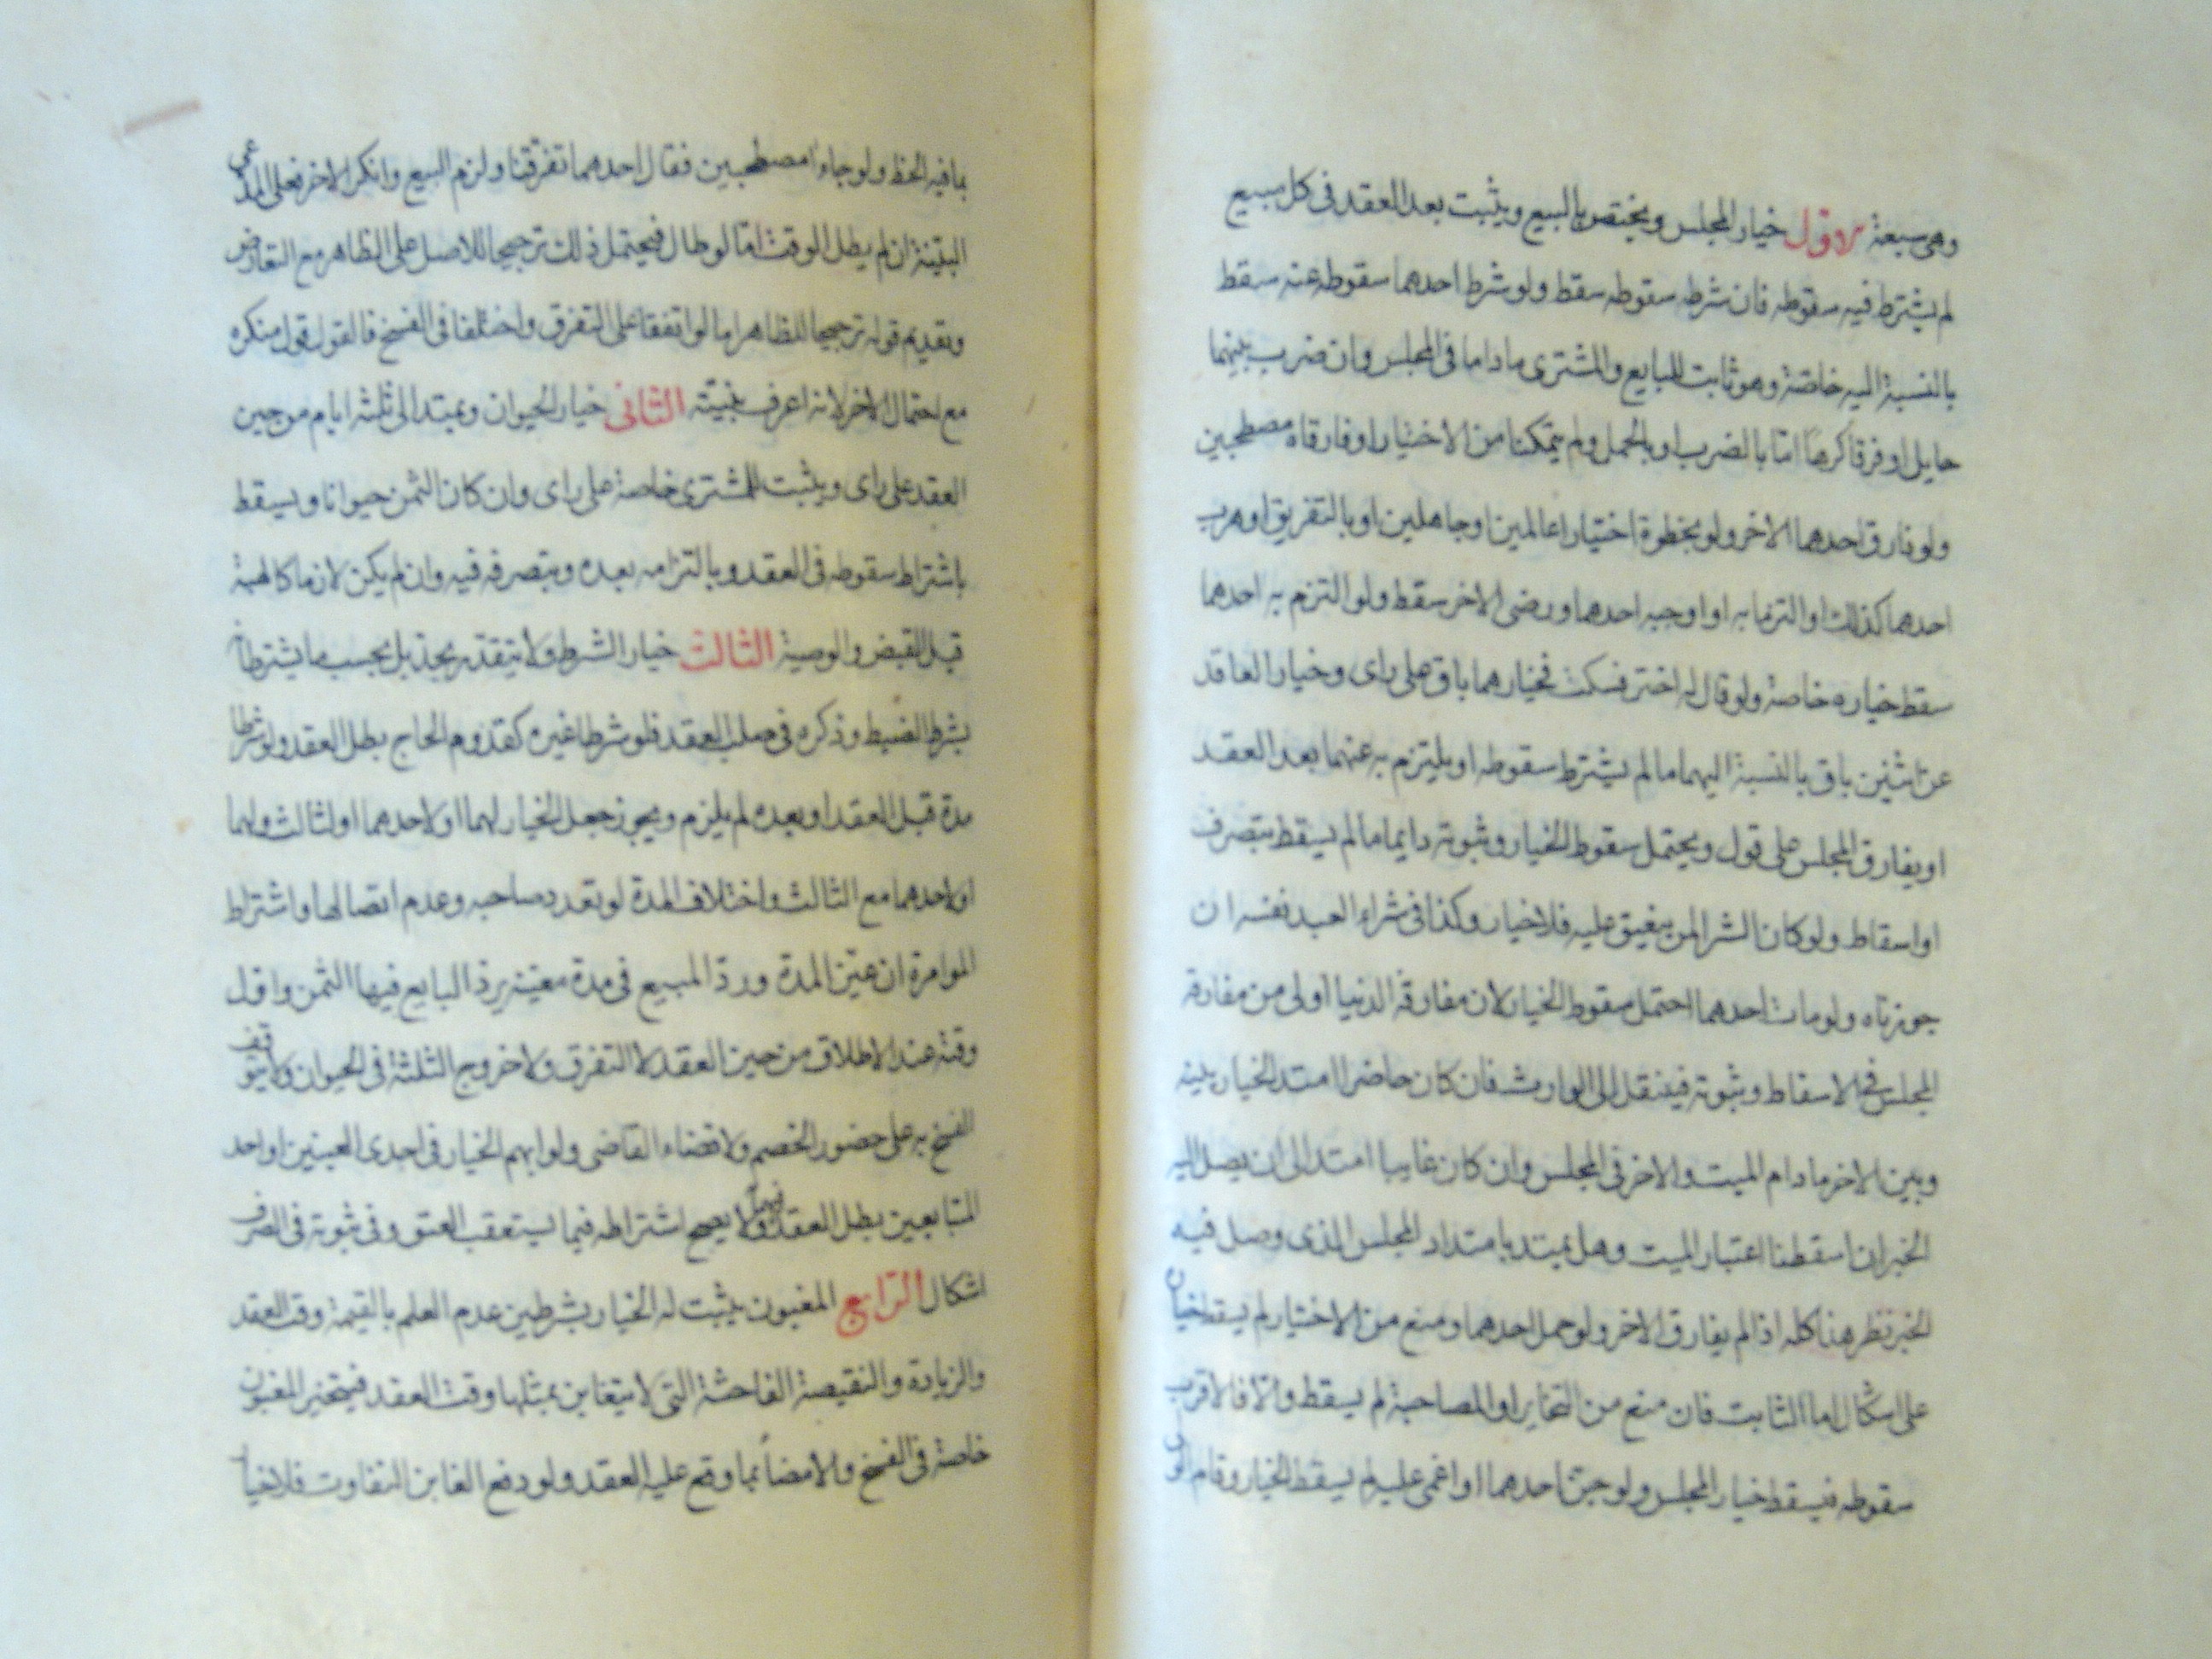 وهى سبعة الاول خيار المجلس ويختص بالبيع ويثبت بعد العقد فى كل مبيع
لم يشترط فيه سقوطه فان شرط سقوطه سقط ولو شرط احدهما سقوطه عنه سقط
بالنسبة اليه خاصة وهو ثابت للبايع والمشترى ماداما فى المجلس وان ضرب بينهما
حايل او فرقا كرها اما بالضرب او بالحمل ولم يتمكنا من الاختيار او فارقاه مصطحبين
ولو فارق احدهما الاخر ولو بخطوة اختيارا عالمين او جاهلين او بالتفريق او هرب
احدهما كذلك او التزما به او اوجبه احدهما ورضى الاخر سقط ولو التزم به احدهما
سقط خياره خاصة ولو قال له اختر فسكت فخيارهما باق على راى وخيار العاقد
عن اثنين باق بالنسبة اليهما ما لم يشترط سقوطه او يلتزم به عنهما بعد العقد
او يفارق المجلس على قول ويحتمل سقوط الخيار وثبوته دايما ما لم يسقط بتصرف
او اسقاط ولو كان الشرا لمن ينعتق عليه فلا خيار وكذا فى شراء العبد نفسه ان
جوزناه ولو مات احدهما احتمل سقوط الخيار لان مفارقة الدنيا اولى من مفارقة
المجلس فى الاسقاط وثبوته فينتقل الى الوارث فان كان حاضرا امتد الخيار بينه
وبين الاخر مادام الميت والاخر فى المجلس وان كان غايبا امتد الى ان يصل اليه
الخبر ان اسقطنا اعتبار الميت وهل يمتد بامتداد المجلس الذى وصل فيه
الخبر نظر هذا كله اذا لم يفارق الاخر ولو حمل احدهما ومنع من الاختيار لم يسقط خياره
على اشكال اما الثابت فان منع من التخاير او المصاحبة لم يسقط والا فالاقرب
سقوطه فيسقط خيار المجلس ولو جن احدهما او اغمى عليه لم يسقط الخيار وقام الولى
بما فيه الحظ ولو جاءا مصطحبين فقال احدهما تفرقنا ولزم البيع وانكر الاخر فعلى المدعى
البينة ان لم يطل الوقت اما لو طال فيحتمل ذلك ترجيحا للاصل على الظاهر مع التعارض
وتقديم قوله ترجيحا للظاهر اما لو اتفقا على التفرق واختلفا فى الفسخ فالقول قول منكره
مع احتمال الاخر لانه اعرف بنيته الثانى خيار الحيوان ويمتد الى ثلثة ايام من حين
العقد على راى ويثبت للمشترى خاصة على راى وان كان الثمن حيوانا ويسقط
باشتراط سقوطه فى العقد وبالتزامه بعده وبتصرفه فيه وان لم يكن لازما كالهبة
قبل القبض والوصية الثالث خيار الشرط ولا يتقدر بحد بل بحسب ما يشترطانه
بشرط الضبط وذكره فى صلب العقد فلو شرطا غيره كقدوم الحاج بطل العقد ولو شرطا
مدة قبل العقد او بعده لم يلزم ويجوز جعل الخيار لهما او لاحدهما او لثالث ولهما
او لاحدهما مع الثالث واختلاف المدة لو تعدد صاحبه وعدم اتصالها واشتراط
الموامرة ان عين المدة ورد المبيع فى مدة معينة يرد البايع فيها الثمن واول
وقته عند الاطلاق من حين العقد لا التفرق ولا خروج الثلثة فى الحيوان ولا يتوقف
الفسخ به على حضور الخصم ولا قضاء القاضى ولو ابهم الخيار فى احدى العينين او احد
المتبايعين بطل العقد فيهما ولا يصح اشتراطه فيما يستعقب العتق وفى ثبوته فى الصرف
اشكال الرابع المغبون يثبت له الخيار بشرطين عدم العلم بالقيمة وقت العقد
والزيادة والنقيصة الفاحشة التى لا يتغابن بمثلها وقت العقد فيتخير المغبون
خاصة فى الفسخ والامضا بما وقع عليه العقد ولو دفع الغابن التفاوت فلا خيار